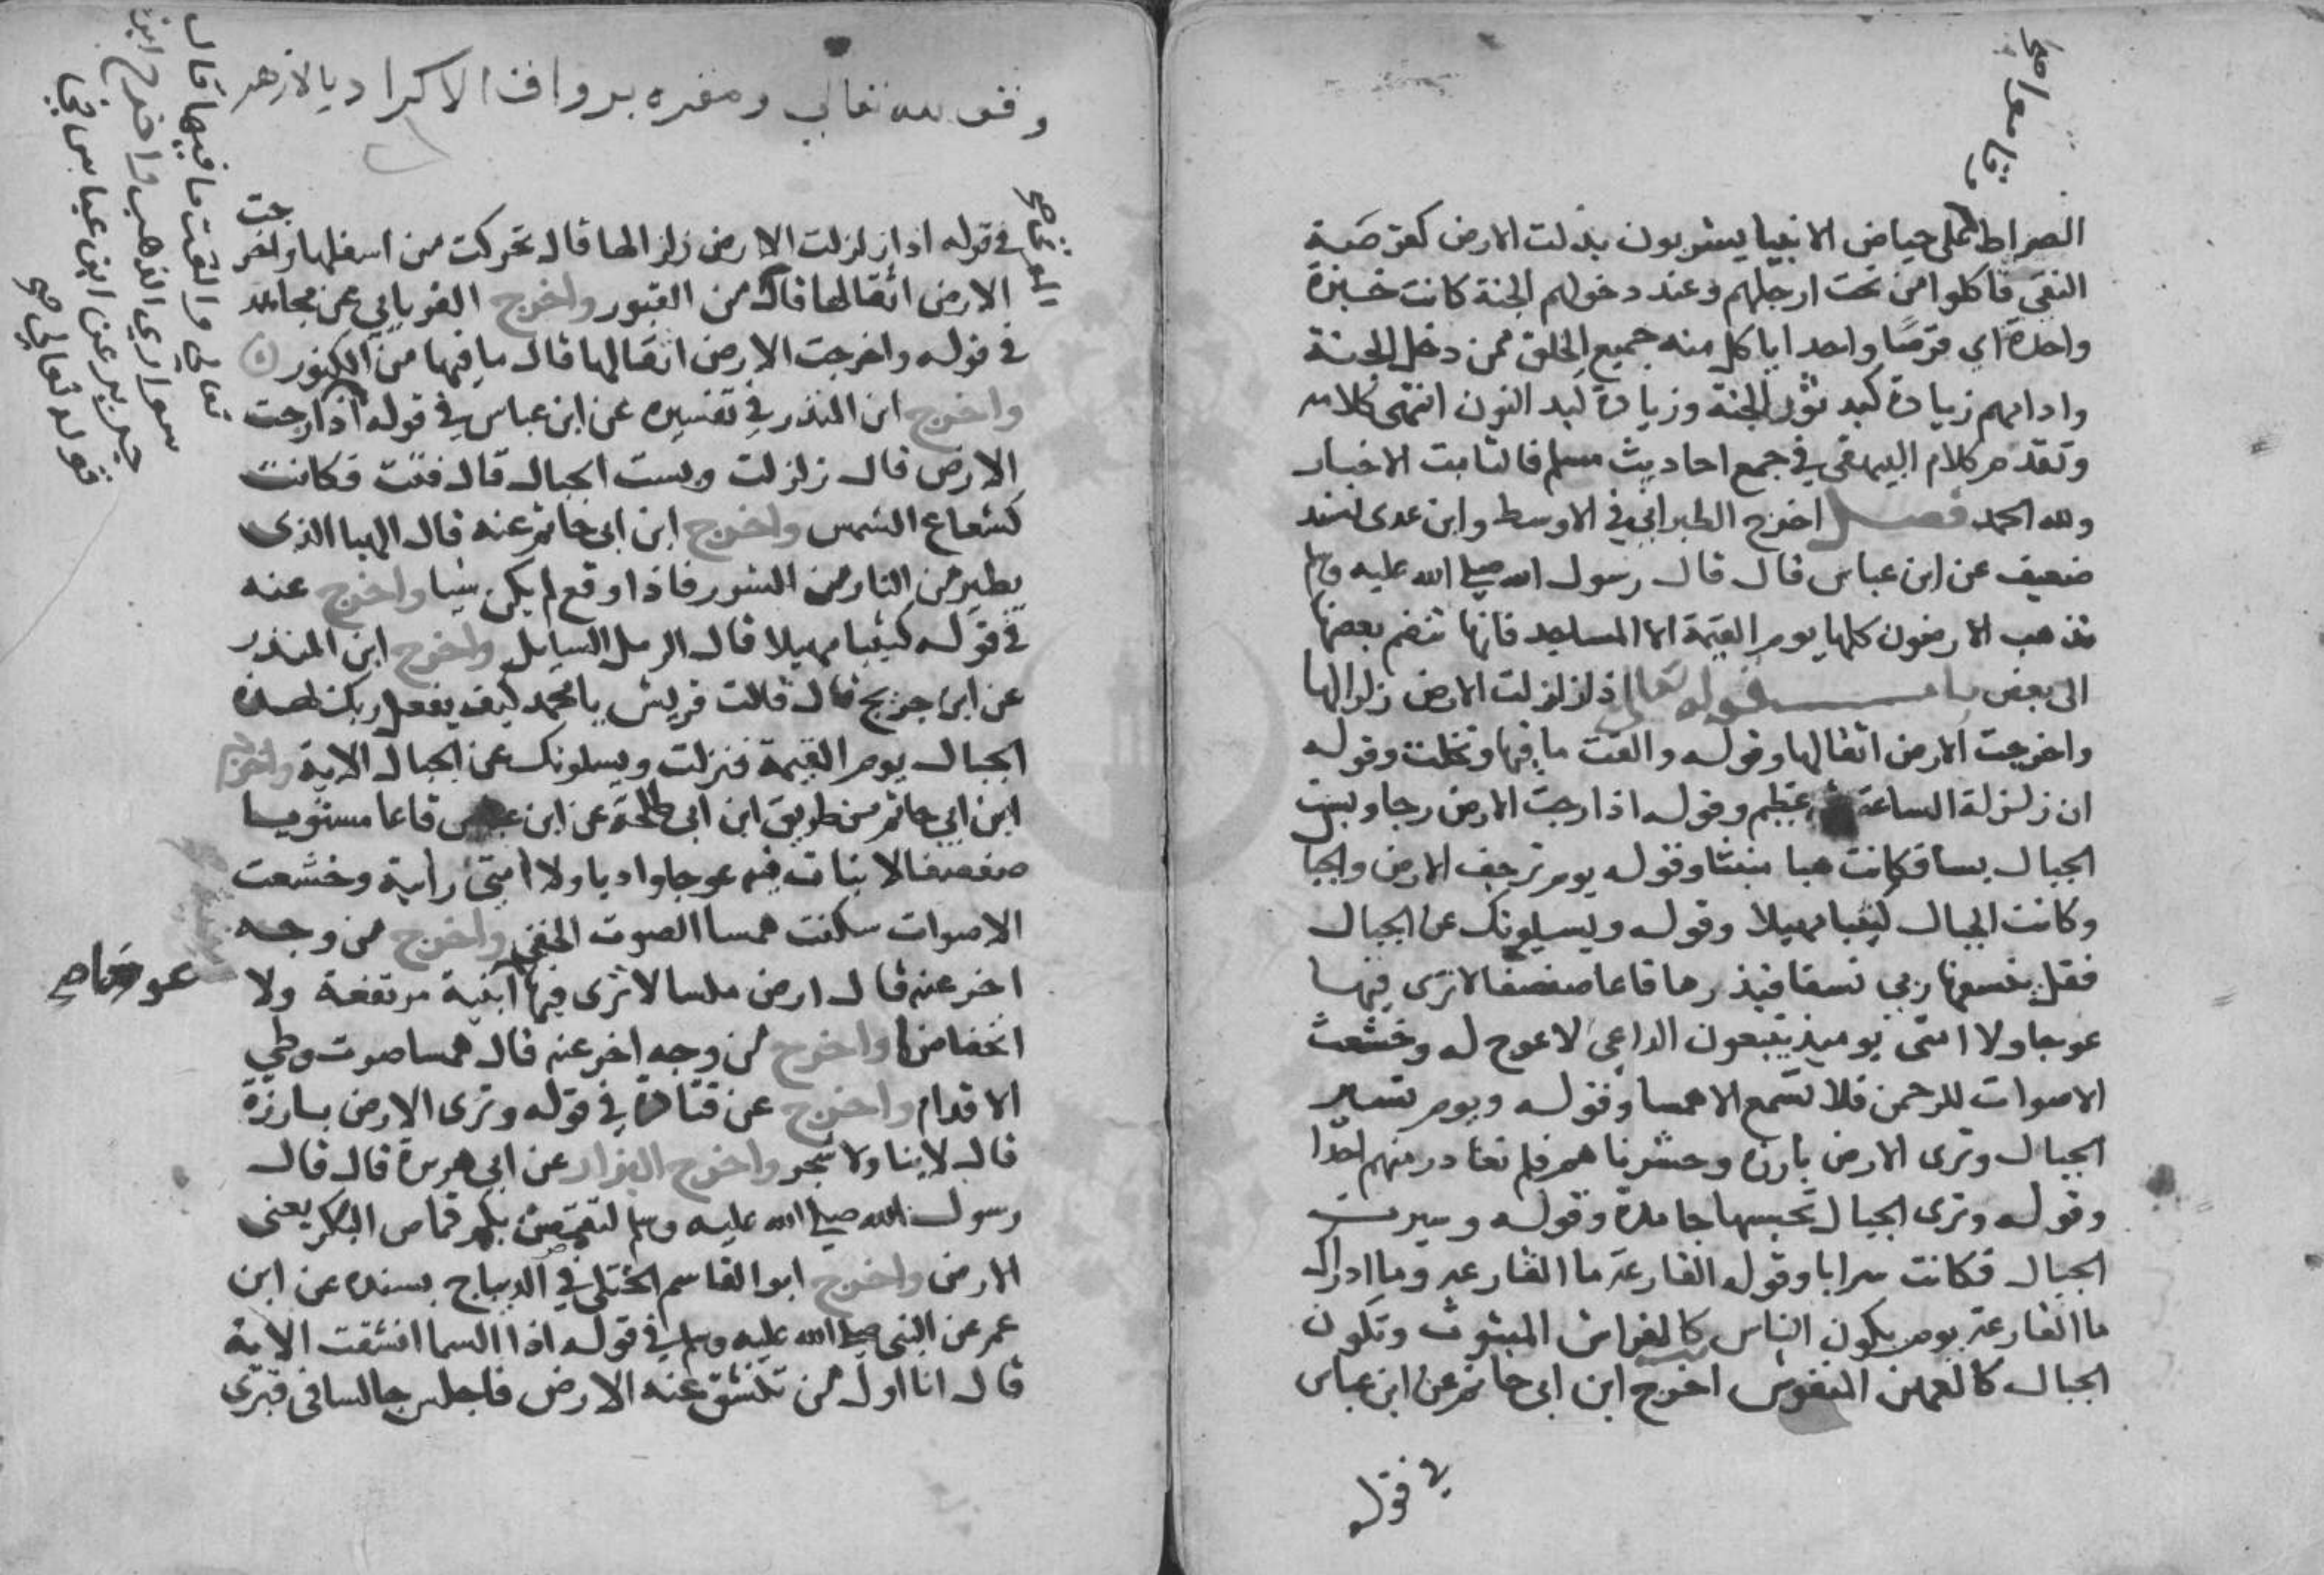 الصراط على حياض الانبيا يشربون بدلت الارض كقرصة
النقي فاكلوا من تحت ارجلهم وعند دخولهم الجنة كانت خبزة
واحدة اي قرصا واحدا ياكل منه جميع الخلق ممن دخل الجنة
وادامهم زيادة كبد ثور الجنة وزيادة كبد النون انتهى كلامه
وتقدم كلام البيهقي في جمع احاديث مسلم فالتامت الاخبار
ولله الحمد فصل اخرج الطبراني في الاوسط وابن عدي بسند
ضعيف عن ابن عباس قال قال رسول الله صلى الله عليه وسلم
تذهب الارضون كلها يوم القيمة الا المساجد فانها تنضم بعضها
الى بعض باب قوله تعالى اذا زلزلت الارض زلزالها
واخرجت الارض اثقالها وقوله والقت ما فيها وتخلت وقوله
ان زلزلة الساعة عظيم وقوله اذا رجت الارض رجا وبست
الجبال بسا فكانت هبا منبثا وقوله يوم ترجف الارض والجبا
وكانت الجبال كثيبا مهيلا وقوله ويسيلونك عن الجبال
فقل ينسفها ربي نسفا فيذرها قاعا صفصفا لا ترى فيها
عوجا ولا امتى يوميذ يتبعون الداعي لا عوج له وخشعت
الاصوات للرحمن فلا تسمع الا همسا وقوله ويوم تسير
الجبال وترى الارض بارزه وحشرناهم فلم تغادر منهم احدا
وقوله وترى الجبال تحسبها جامدة وقوله وسيرت
الجبال فكانت سرابا وقوله القارعة ما القارعه وما ادراك
ما القارعة يوم يكون الناس كالفراش المبثوث وتكون
الجبال كالعهن المنفوش اخرج ابن ابي حاتم عن ابن عباس
في قوله
وقف لله تعالى ومقره برواق الاكراد بالازهر
في قوله اذا زلزلت الارض زلزالها قال تحركت من اسفلها واخرجت
الارض اثقالها قال من القبور واخرج الفريابي عن مجاهد
في قوله واخرجت الارض اثقالها قال ما فيها من الكنوز
واخرج ابن المنذر في تفسيره عن ابن عباس في قوله اذا رجت
الارض قال زلزلت وبست الجبال قال فتت فكانت
كشعاع الشمس واخرج ابن ابي حاتم عنه قال الهبا الذى
يطير من النار من الشرر فاذا وقع لم يكن شيا واخرج عنه
في قوله كثيبا مهيلا قال الرمل السايل واخرج ابن المنذر
عن ابن جريج قال قالت قريش يا محمد كيف يفعل ربك بهذه
الجبال يوم القيمة فنزلت ويسلونك عن الجبال الاية واخرج
ابن ابي حاتم من طريق ابن ابي طلحة عن ابن عباس قاعا مستويا
صفصفا لا نبات فيه عوجا واديا ولا امتى رابية وخشعت
الاصوات سكنت همسا الصوت الخفي واخرج من وجه
اخر عنه قال ارض ملسا لا ترى فيها ابنية مرتفعة ولا
انخفاضا واخرج من وجه اخر عنه قال همسا صوت وطي
الاقدام واخرج عن قتادة في قوله وترى الارض بارزة
قال لا بنا ولا شجر واخرج البزار عن ابي هريرة قال قال
رسول الله صلى الله عليه وسلم لتقمصن بكم قماص البكر يعنى
الارض واخرج ابو القاسم الختلي في الديباج بسنده عن ابن
عمر عن النبي صلى الله عليه وسلم في قوله اذا السما انشقت الاية
قال انا اول من تنشق عنه الارض فاجلس جالسا في قبرى
تعالى والقت ما فيها قال
سواري الذهب واخرج ابن
جرير عن ابن عباس في
قوله تعالى صح